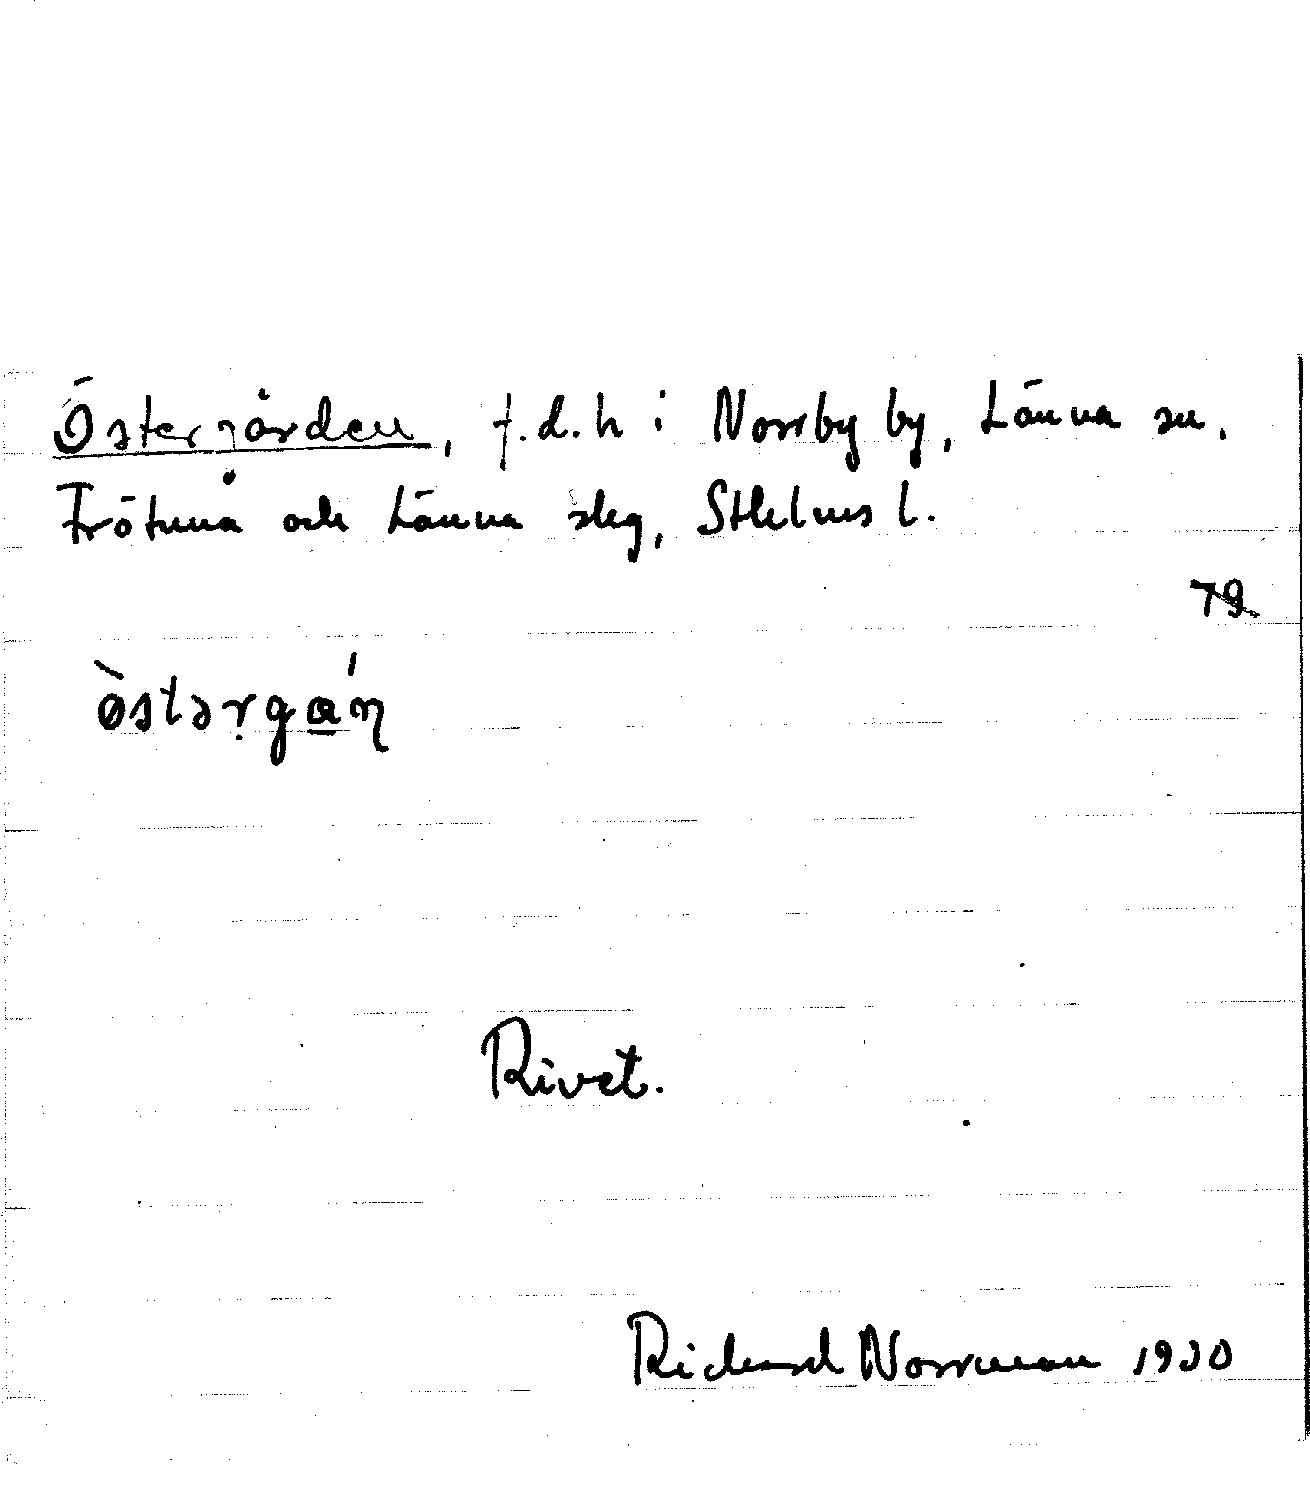 Östergården, f.d.h i Norrby by, Länna sn.
Frötuna och Länna skg, Sthlms l.
79
ö̀stərga̱´ɳ
Rivet.
Richard Norrman 1930